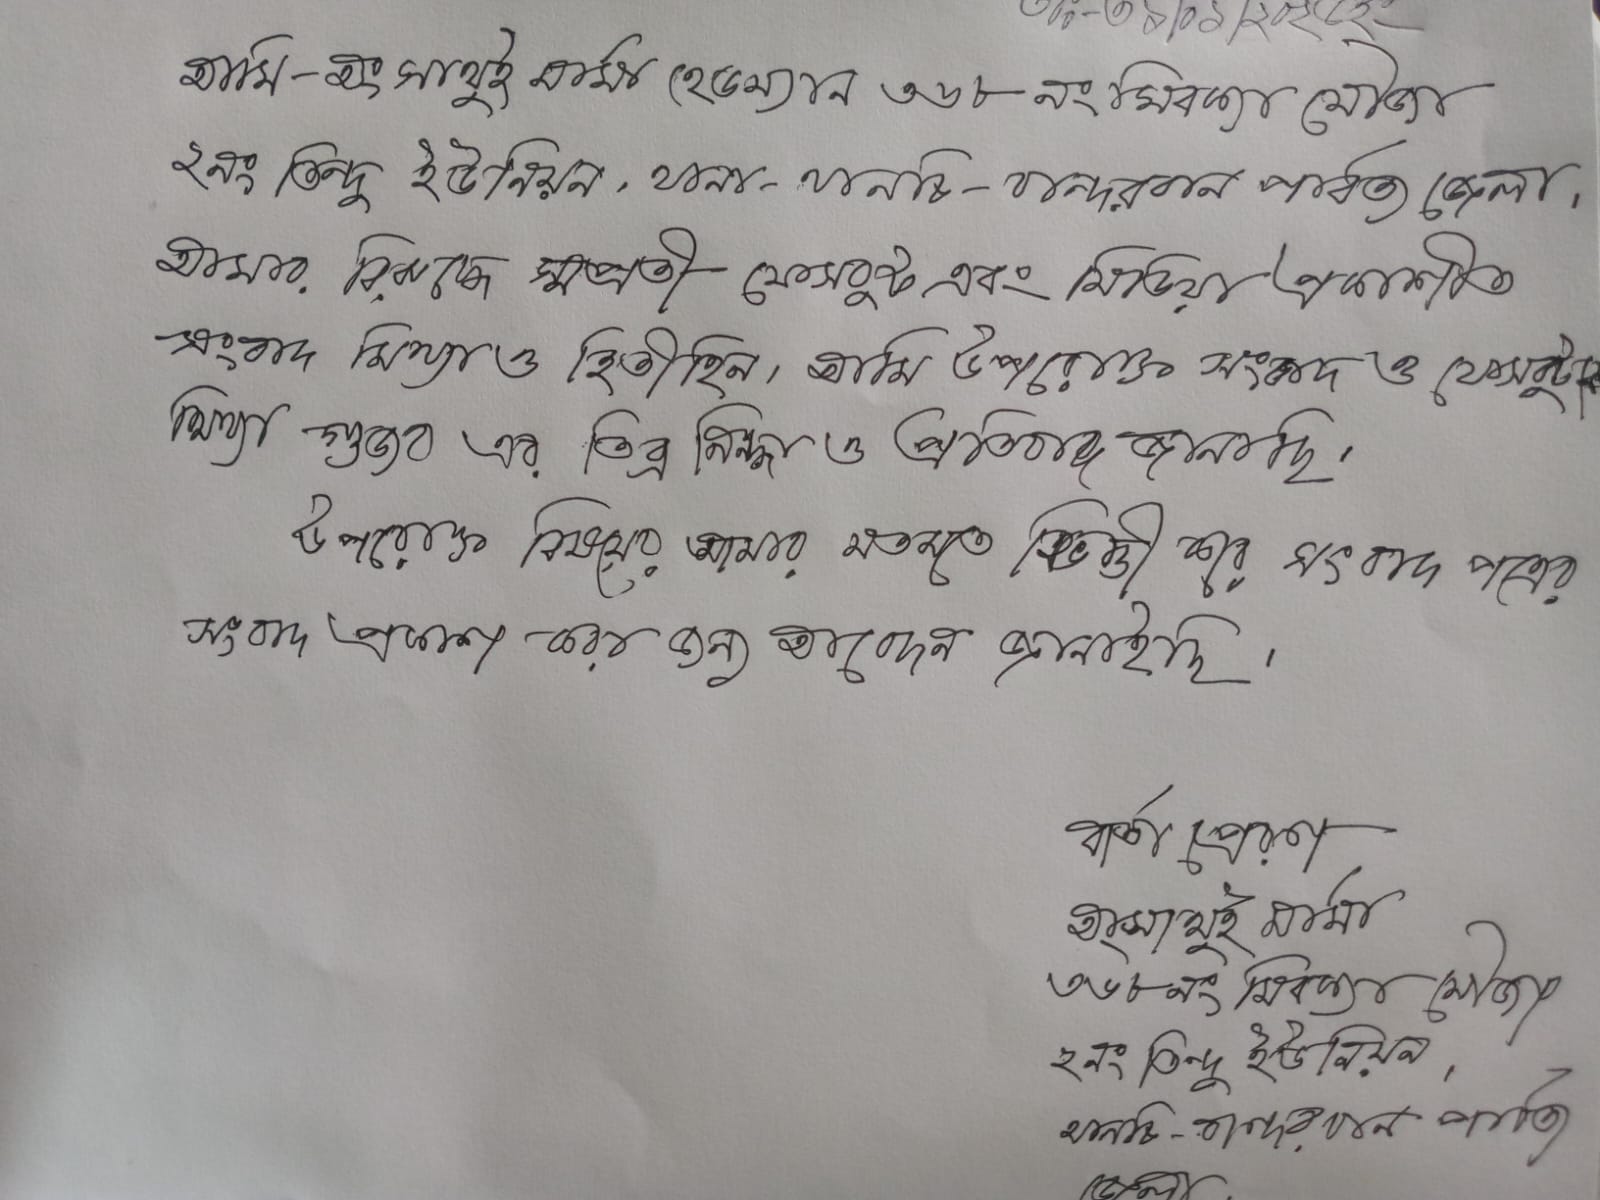 আমি - অং সাথুই মার্মা হেডম্যান ৩৬৮ নং মিবক্যা মৌজা
২নং তিন্দু ইউনিয়ন, থানা - থানচি - বান্দরবান পার্বত্য জেলা,
আমার বিরুদ্ধে সম্প্রতী ফেসবুক এবং মিডিয়া প্রকাশীত
সংবাদ মিথ্যা ও ভিতীহিন, আমি উপরোক্ত সংবাদ ও ফেসবুকে
মিথ্যা গুজব এর তিব্র নিন্দা ও প্রতিবাদ জানাচ্ছি,
উপরোক্ত বিষয়ের আমার মতামত ভিত্তী করে সংবাদ পত্রের
সংবাদ প্রকাশ করার জন্য আবেদন জানাইছি,
বার্তা প্রেরক
অংসাথুই মার্মা
৩৬৮ নং মিবক্যা মৌজা
২নং তিন্দু ইউনিয়ন,
থানচি - বান্দরবান পার্বত্য
জেলা,